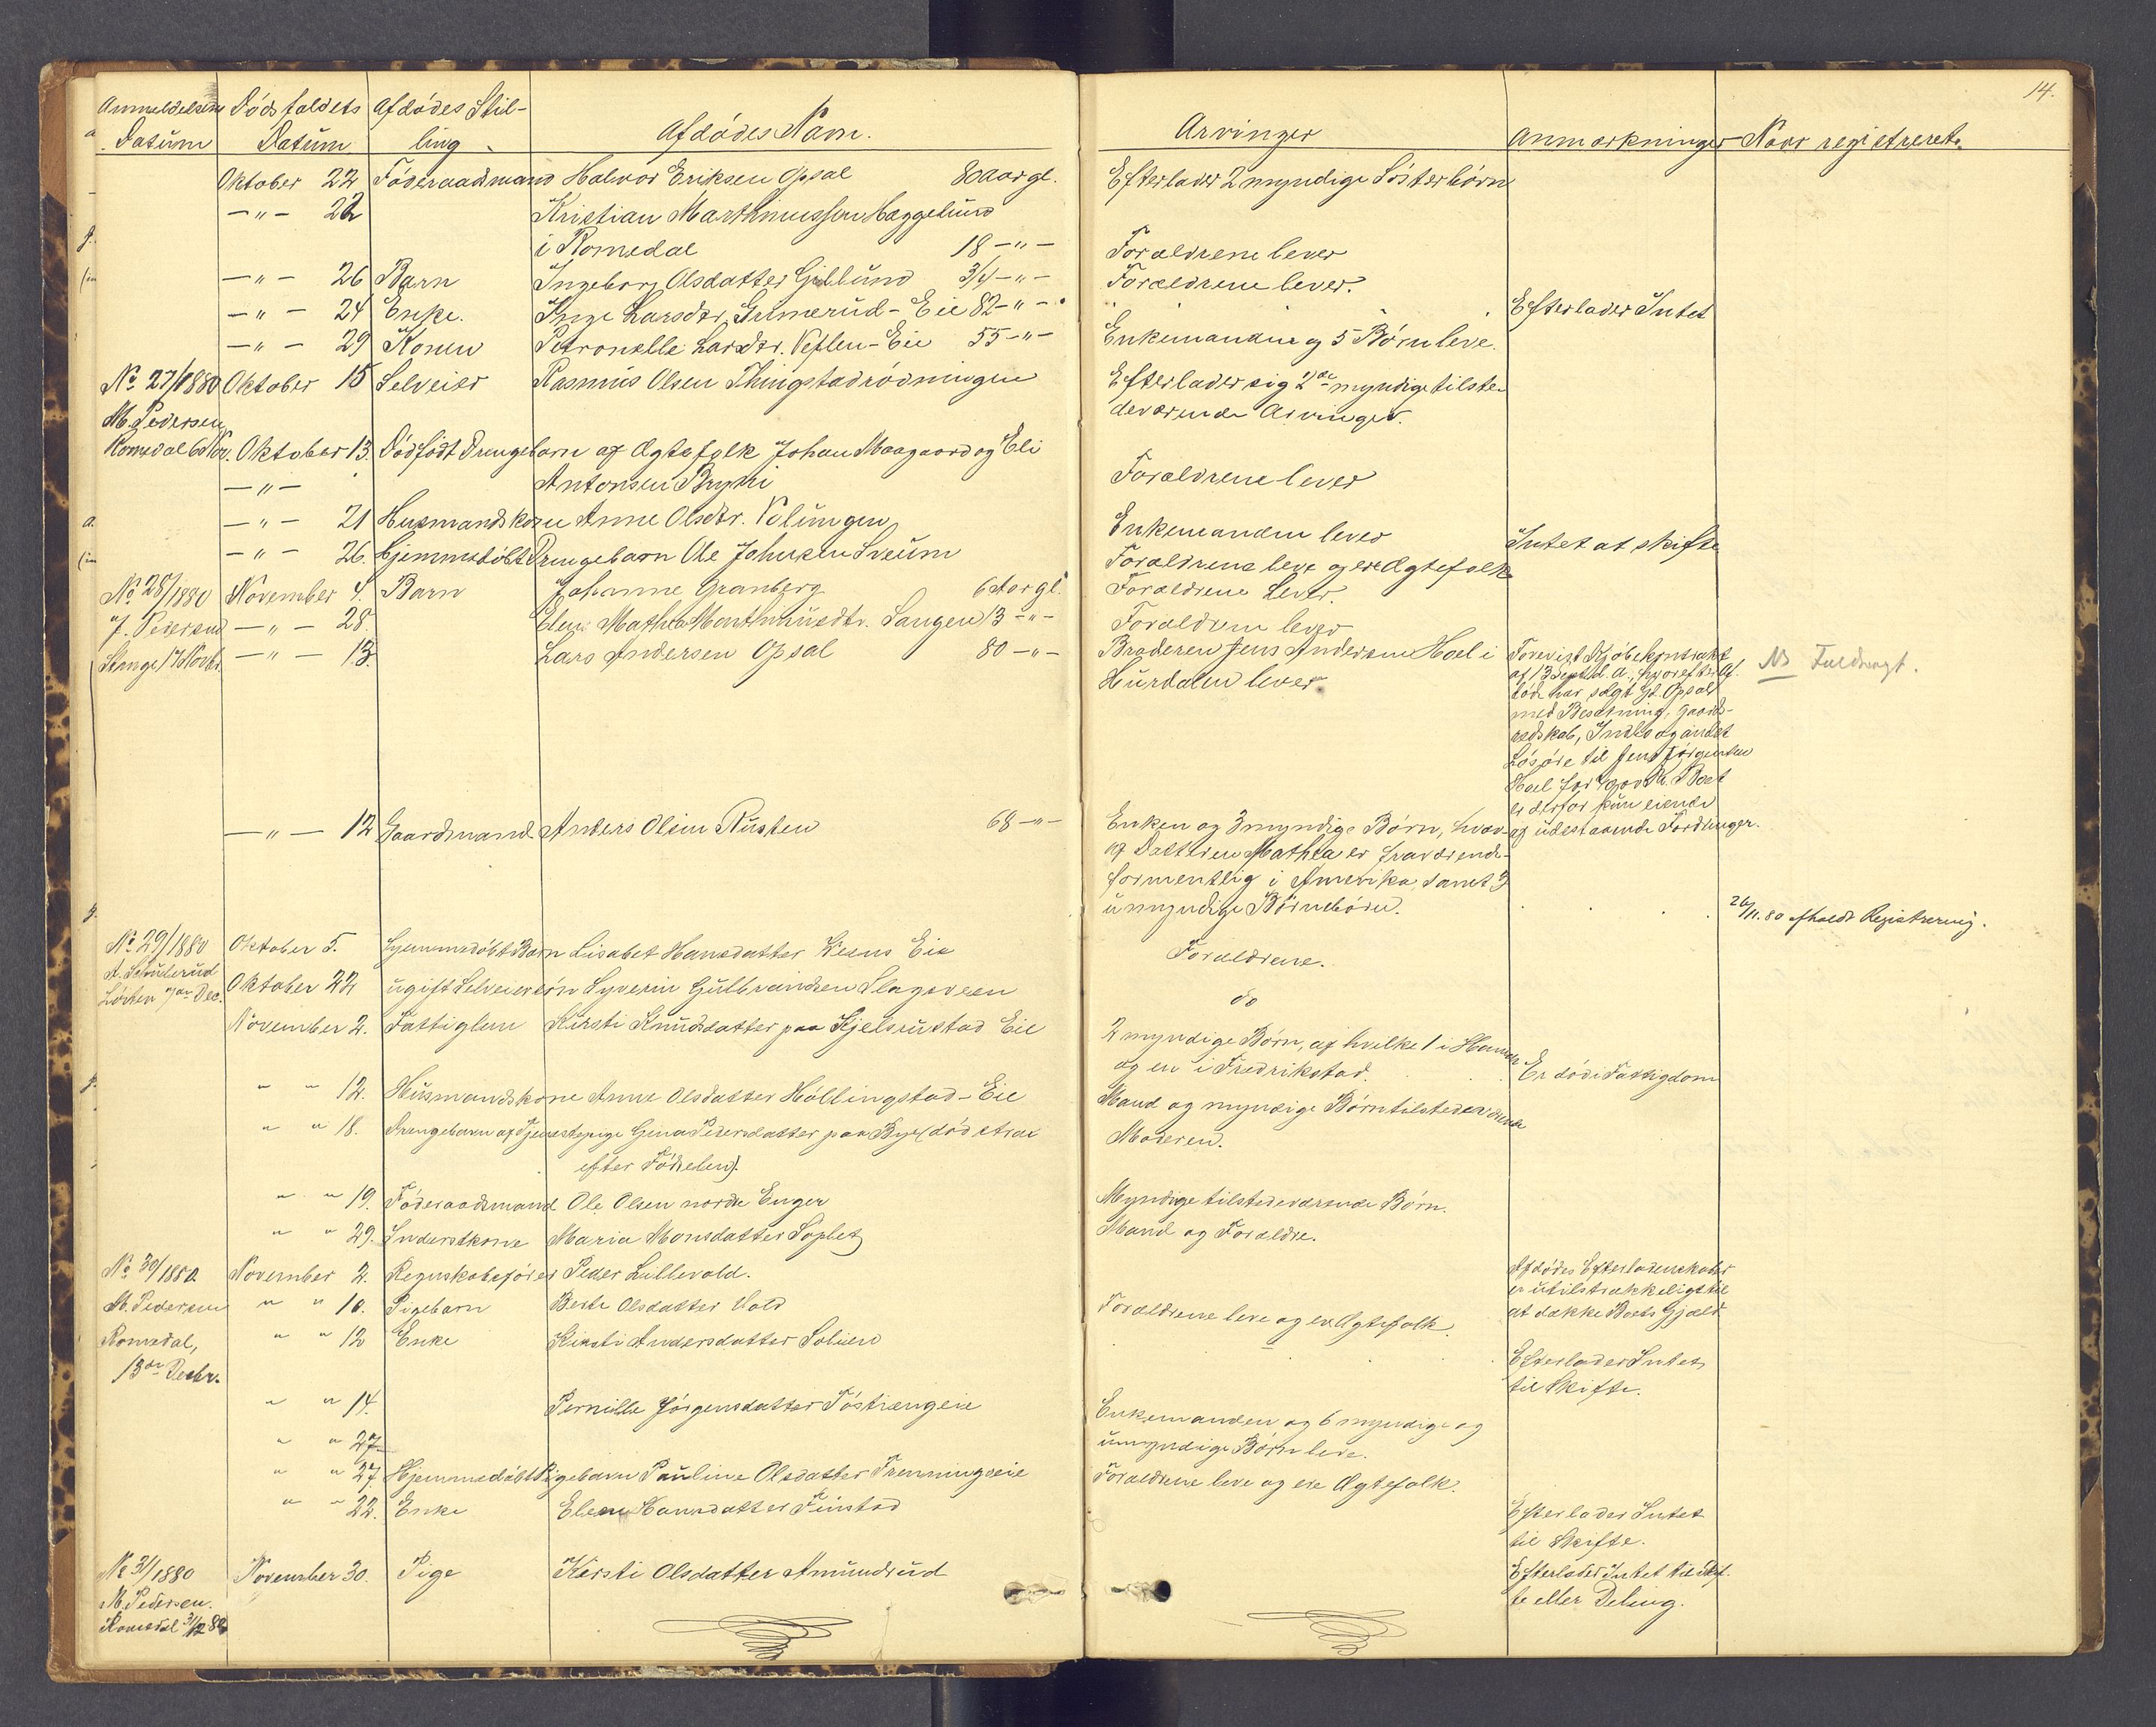 14.
Anmeldelsens Dødsfaldets Afdødes Stil- Afdødes Navn. Arvinger Anmærkninger Naar registreret.
Datum Datum ling
Oktober 22 Føderaadsmand Halvor Eriksen Opsal 80 aar gl. Efterlader 2 myndige Søsterbørn
—"— 22 Kristian Marthinussen Hæggelund
i Romedal 18 —"— Forældrene lever
—"— 26 Barn Ingeborg Olsdatter Gillund 3/4 —"— Forældrene lever.
—"— 24 Enke. Inge Larsdtr. Grimerud-Eie 82 —"— Efterlader Intet
—"— 29 Konen Petronelle Larsdtr. Veflen-Eie 55 —"— Enkemanden og 5 Børn leve.
No 27/1880 Oktober 15 Selveier Rasmus Olsen Thingstadrødningen Efterlader sig 2de myndige tilste-
M. Pedersen deværende Arvinger.
Romedal 6 Nov. Oktober 13. Dødfødt Drengebarn af Ægtefolk Johan Maagaard og Eli
—"— Antonsen Bryni Forældrene lever
—"— 21 Husmandskone Anne Olsdtr. Volungen Enkemanden lever Intet at skifte
—"— 26. Hjemmedøbt Drengebarn Ole Johnsen Sveum Forældrene leve og ere Ægtefolk
No 28/1880 November 4. Barn Johanne Granberg 6 Aar gl. Forældrene Lever.
J. Pedersen —"— 28. Elen Mathea Monthinusdtr. Sangen 13 —"— Forældrene lever
Stange 17 Novbr. —"— 13. Lars Andersen Opsal 80 —"— Broderen Jens Andersen Hoel i Forevist Kjøbekontrakt NB Fuldmagt.
Hurdalen lever af 13 Septbr. d. A., hvorefter Af-
døde har solgt Gd. Opsal
med Besætning, Gaards-
redskab, Indbo og andet
Løsøre til Jens Jørgensen
Hoel for
er derfor kun eiende
—"— 12 Gaardmand Anders Olsen Rusten 68 —"— Enken og 3 myndige Børn, hvor- og udestaaende Fordringer.
af Datteren Mathea er fraværende
formentlig i Amerika, samt 3
umyndige Børnebørn. 26/11.80 afholdt Registrering.
No 29/1880 Oktober 5. Hjemmedøbt Barn Lisabet Hansdatter Viens Eie Forældrene.
A. Schulerud Oktober 22 ugift Selveiersøn Syverin Gulbrandsen Slagsveen do
Løiten Dec.
November 2. Fattiglem Kirsti Knudsdatter paa Kjelsrustad Eie 2 myndige Børn, af hvilke 1 i Hamar
og en i Fredrikstad. Er død i Fattigdom
" " 12. Husmandskone Anne Olsdatter Hollingstad-Eie Mand og myndige Børn tilstedeværende
" " 18. Drengebarn af Tjenestepige Gina Pedersdatter paa Bye (død strax Moderen.
efter Fødselen).
" " 19. Føderaadsmand Ole Olsen nordre Enger Myndige tilstedeværende Børn.
" " 29. Inderstkone Maria Monsdatter Soplet Mand og Forældre.
No 30/1880 November 2. Regnskabsfører Peder Lillevold. Afdødes Efterladenskaber
er utilstrækkeligt til
M. Pedersen " " 10. Pigebarn Berte Olsdatter Vold Forældrene leve og ere Ægtefolk. at dække Boets Gjæld
Romedal, " " 12 Enke Kirsti Andersdatter Solien Efterlader Intet
13de Decbr. til Skifte.
" " 14. Pernille Jørgensdatter Tøstrængeie Enkemanden og 6 myndige og
" " 27 umyndige Børn leve.
" " 27. Hjemmedøbt Pigebarn Pauline Olsdatter Frenningseie Forældrene leve og ere Ægtefolk.
" " 22. Enke Elene Hansdatter Finstad Efterlader Intet
til Skifte.
No 31/1880 November 30. Pige Kirsti Olsdatter Amundrud Efterlader Intet til Skif-
M. Pedersen. te eller Deling.
Romedal 3/12 80